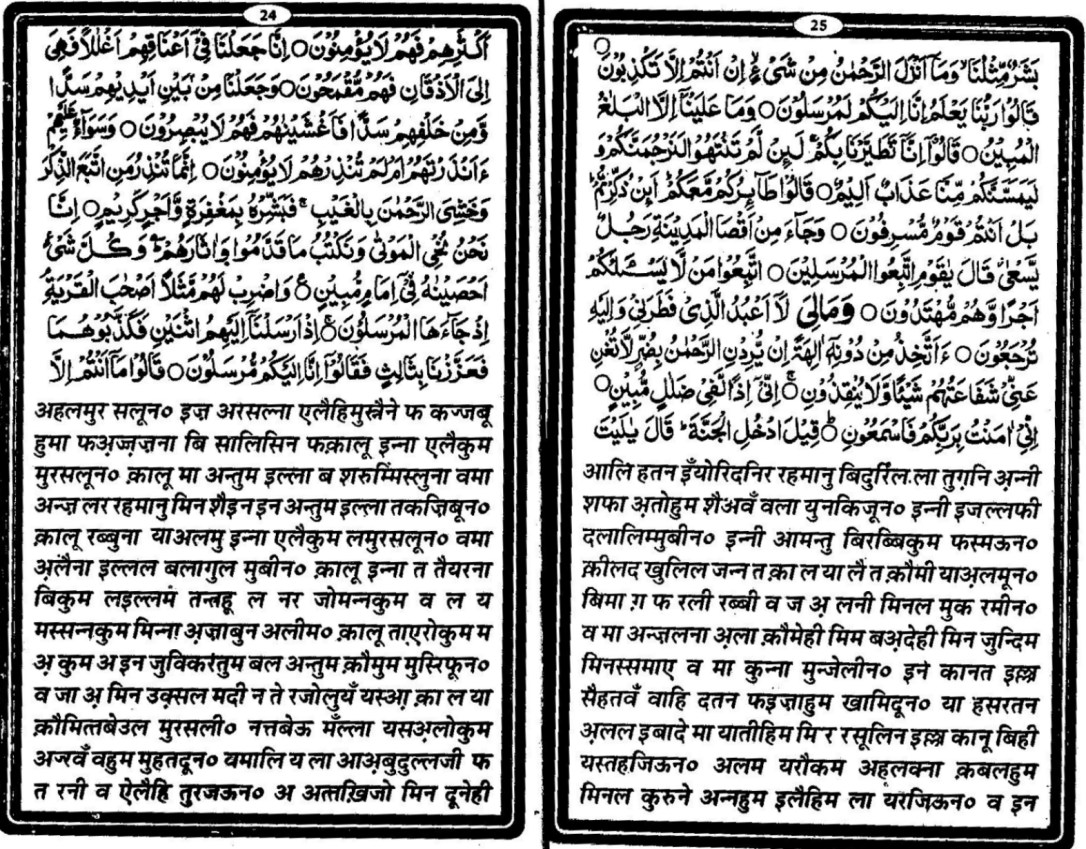 24
اَكْثَرِهِمْ فَهُمْ لَا يُؤْمِنُوْنَ○ اِنَّا جَعَلْنَا فِيْٓ اَعْنَاقِهِمْ اَغْلٰلًا فَهِيَ
اِلَى الْاَذْقَانِ فَهُمْ مُّقْمَحُوْنَ○ وَجَعَلْنَا مِنْۢ بَيْنِ اَيْدِيْهِمْ سَدًّا
وَّمِنْ خَلْفِهِمْ سَدًّا فَاَغْشَيْنٰهُمْ فَهُمْ لَا يُبْصِرُوْنَ○ وَسَوَآءٌ عَلَيْهِمْ
ءَاَنْذَرْتَهُمْ اَمْ لَمْ تُنْذِرْهُمْ لَا يُؤْمِنُوْنَ○ اِنَّمَا تُنْذِرُ مَنِ اتَّبَعَ الذِّكْرَ
وَخَشِيَ الرَّحْمٰنَ بِالْغَيْبِ ۚ فَبَشِّرْهُ بِمَغْفِرَةٍ وَّاَجْرٍ كَرِيْمٍ○ اِنَّا
نَحْنُ نُحْيِ الْمَوْتٰى وَنَكْتُبُ مَا قَدَّمُوْا وَاٰثَارَهُمْ ؕ وَكُلَّ شَيْءٍ
اَحْصَيْنٰهُ فِيْٓ اِمَامٍ مُّبِيْنٍ○ وَاضْرِبْ لَهُمْ مَّثَلًا اَصْحٰبَ الْقَرْيَةِ
اِذْ جَآءَهَا الْمُرْسَلُوْنَ○ اِذْ اَرْسَلْنَآ اِلَيْهِمُ اثْنَيْنِ فَكَذَّبُوْهُمَا
فَعَزَّزْنَا بِثَالِثٍ فَقَالُوْٓا اِنَّآ اِلَيْكُمْ مُّرْسَلُوْنَ○ قَالُوْا مَآ اَنْتُمْ اِلَّا
अहलमुर सलून० इज़ अरसल्ना एलैहिमुस्नैने फ कज्जबू
हुमा फअ़ज़्ज़ज़ना बि सालिसिन फक़ालू इन्ना एलैकुम
मुरसलून० क़ालू मा अन्तुम इल्ला ब शरुम्मिस्लुना वमा
अन्ज़ लर रहमानु मिन शैइन इन अन्तुम इल्ला तकज़िबून०
क़ालू रब्बुना याअलमु इन्ना एलैकुम लमुरसलून० वमा
अ़लैना इल्लल बलागुल मुबीन० क़ालू इन्ना त तैयरना
बिकुम लइल्लमं तन्तहू ल नर जोमन्नकुम व ल य
मस्सन्नकुम मिन्ना अ़ज़ाबुन अलीम० क़ालू ताएरोकुम म
अ़ कुम अ इन जुविकरतुम बल अन्तुम क़ौमुम मुस्रिफून०
व जा अ़ मिन उक़्सल मदी न ते रजोलुयँ यस्आ़ क़ा ल या
क़ौमित्तबेउल मुरसली० नत्तबेऊ मँल्ला यसअ़लोकुम
अजरवँ वहुम मुहतदून० वमालि य ला आअ़बुदुल्लजी फ
त रनी व ऐलैहि तुरजऊन० अ अत्तख़िजो मिन दूनेही
25
بَشَرٌ مِّثْلُنَا ۙ وَمَآ اَنْزَلَ الرَّحْمٰنُ مِنْ شَيْءٍ ۙ اِنْ اَنْتُمْ اِلَّا تَكْذِبُوْنَ○
قَالُوْا رَبُّنَا يَعْلَمُ اِنَّآ اِلَيْكُمْ لَمُرْسَلُوْنَ○ وَمَا عَلَيْنَآ اِلَّا الْبَلٰغُ
الْمُبِيْنُ○ قَالُوْٓا اِنَّا تَطَيَّرْنَا بِكُمْ ۚ لَئِنْ لَّمْ تَنْتَهُوْا لَنَرْجُمَنَّكُمْ وَ
لَيَمَسَّنَّكُمْ مِّنَّا عَذَابٌ اَلِيْمٌ○ قَالُوْا طَآئِرُكُمْ مَّعَكُمْ ؕ اَئِنْ ذُكِّرْتُمْ ؕ
بَلْ اَنْتُمْ قَوْمٌ مُّسْرِفُوْنَ○ وَجَآءَ مِنْ اَقْصَا الْمَدِيْنَةِ رَجُلٌ
يَّسْعٰى قَالَ يٰقَوْمِ اتَّبِعُوا الْمُرْسَلِيْنَ○ اتَّبِعُوْا مَنْ لَّا يَسْـَٔلُكُمْ
اَجْرًا وَّهُمْ مُّهْتَدُوْنَ○ وَمَالِيَ لَآ اَعْبُدُ الَّذِيْ فَطَرَنِيْ وَاِلَيْهِ
تُرْجَعُوْنَ○ ءَاَتَّخِذُ مِنْ دُوْنِهٖٓ اٰلِهَةً اِنْ يُّرِدْنِ الرَّحْمٰنُ بِضُرٍّ لَّا تُغْنِ
عَنِّيْ شَفَاعَتُهُمْ شَيْـًٔا وَّلَا يُنْقِذُوْنِ○ اِنِّيْٓ اِذًا لَّفِيْ ضَلٰلٍ مُّبِيْنٍ○
اِنِّيْٓ اٰمَنْتُ بِرَبِّكُمْ فَاسْمَعُوْنِ○ قِيْلَ ادْخُلِ الْجَنَّةَ ؕ قَالَ يٰلَيْتَ
आलि हतन इँयोरिदनिर रहमानु बिदुर्रिल.ला तुग़नि अ़न्नी
शफा अ़तोहुम शैअवँ वला युनकिजून० इन्नी इजल्लफी
दलालिम्मुबीन० इन्नी आमन्तु बिरब्बिकुम फस्मऊन०
क़ीलद खुलिल जन्न त क़ा ल या लै त क़ौमी याअ़लमून०
बिमा ग़ फ रली रब्बी व ज अ़ लनी मिनल मुक रमीन०
व मा अन्ज़लना अ़ला क़ौमेही मिम बअ़देही मिन जुन्दिम
मिनस्समाए व मा कुन्ना मुन्जेलीन० इन कानत इल्ला
सैहतवँ वाहि दतन फइज़ाहुम खामिदून० या हसरतन
अ़लल इबादे मा यातीहिम मिर रसूलिन इल्ला कानू बिही
यस्तहज़िऊन० अलम यरौकम अहलक्ना क़बलहुम
मिनल कुरुने अन्नहुम इलैहिम ला यरज़िऊन० व इन